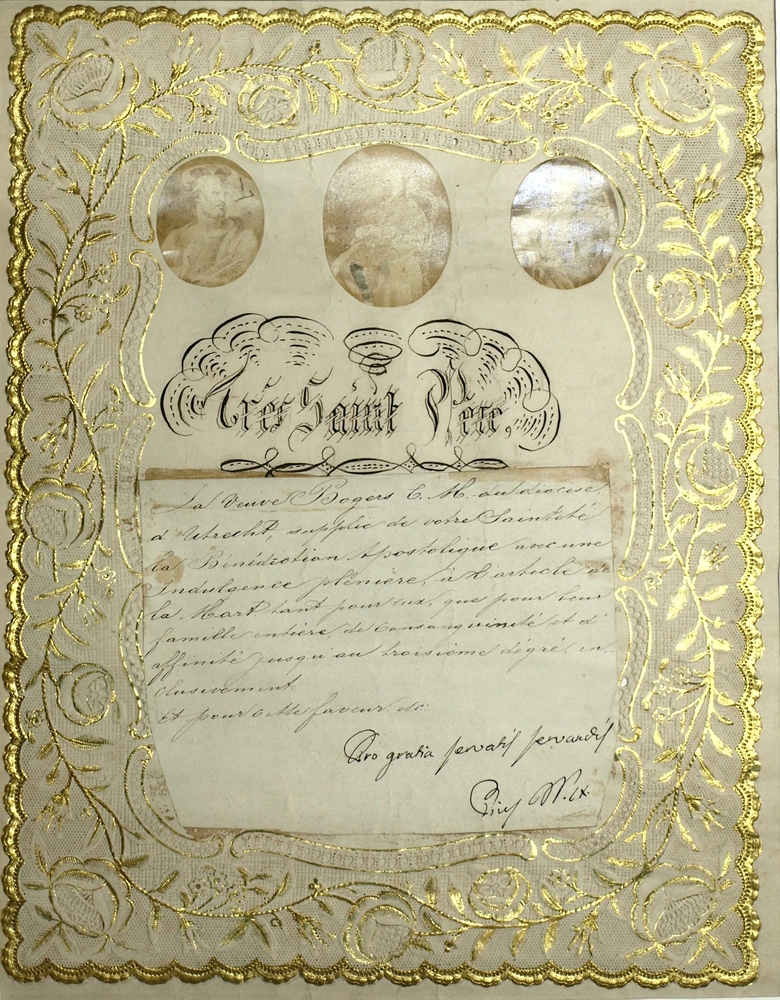 Très Saint Père,
La Veuve Bogers C. M. du diocèse,
d'Utrecht, supplie de votre Sainteté
la Bénédiction Apostolique avec une
Indulgence plénière, à l'article de
la Mort tant pour eux, que pour leur
famille entière, de Consanguinité et d'
affinité jusqu'au troisième dégré, in-
clusivement
et pour cette faveur etc:
Pro gratia servatis servandis
Pius PP. IX